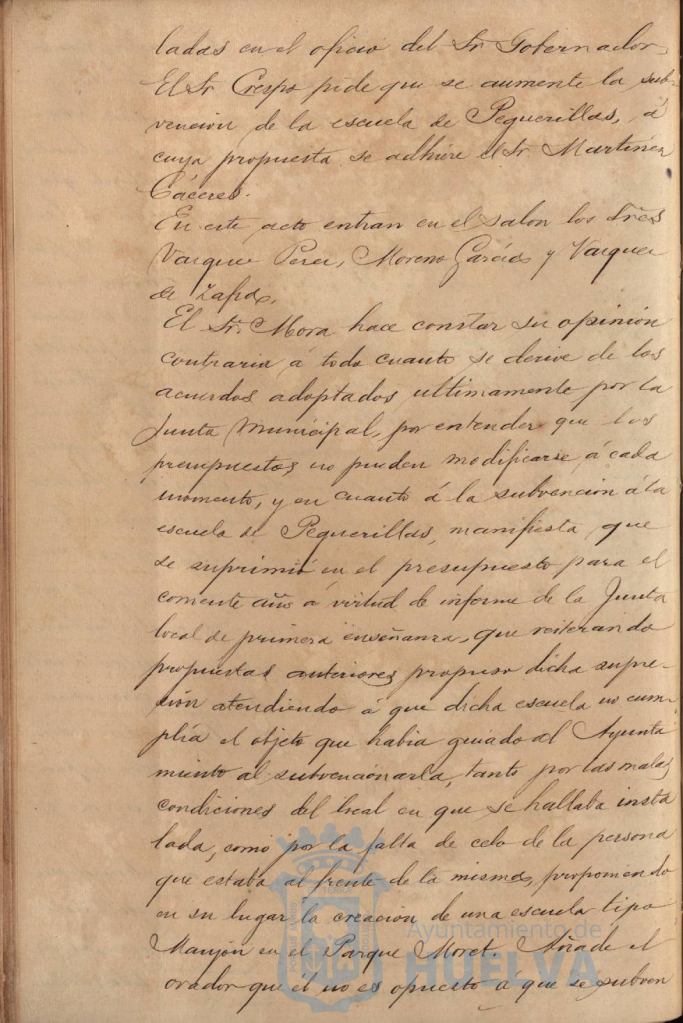 ladas en el oficio del Sr Gobernador
El Sr Crespo pide que se aumente la sub-
vención de la escuela de Peguerillas, á
cuya propuesta se adhiere el Sr Martinez
Cáceres.
En este acto entran en el salon los Sres
Vazquez Perez, Moreno García y Vazquez
de Zafra.
El Sr. Mora hace constar su opinión
contraria á todo cuanto se derive de los
acuerdos adoptados ultimamente por la
Junta Municipal, por entender que los
presupuestos no pueden modificarse á cada
momento, y en cuanto á la subvención á la
escuela de Peguerillas, manifiesta que
se suprimió en el presupuesto para el
corriente año á virtud de informe de la Junta
local de primera enseñanza, que reiterando
propuestas anteriores propuso dicha supre-
sión atendiendo á que dicha escuela no cum-
plía el objeto que habia guiado al Ayunta
miento al subvencionarla, tanto por las malas
condiciones del local en que se hallaba insta
lada, como por la falta de celo de la persona
que estaba al frente de la misma, proponiendo
en su lugar la creación de una escuela tipo
Manjón en el Parque Moret. Añade el
orador que él no es opuesto á que se subven
Ayuntamiento de
HUELVA